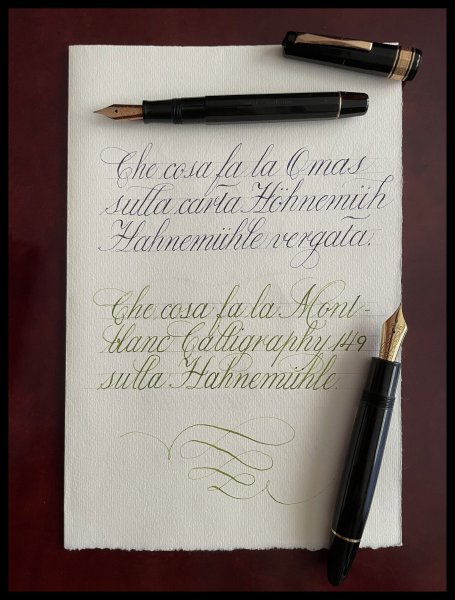 Che cosa fa la Omas
sulla carta Höhnemüh
Hahnemühle vergata.
Che cosa fa la Mont-
blanc Calligraphy 149
sulla Hahnemühle.